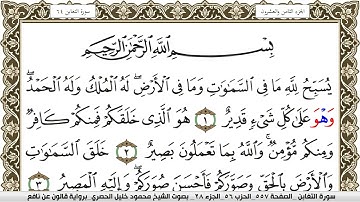 الجزء الثامن والعشرون
سورة التغابن ٦٤
بِسْمِ اللَّهِ الرَّحْمَٰنِ الرَّحِيمِ
يُسَبِّحُ لِلَّهِ مَا فِي السَّمَٰوَٰتِ وَمَا فِي الْأَرْضِ ۖ لَهُ الْمُلْكُ وَلَهُ الْحَمْدُ ۖ
وَهُوَ عَلَىٰ كُلِّ شَيْءٍ قَدِيرٌ ١ هُوَ الَّذِي خَلَقَكُمْ فَمِنكُمْ كَافِرٌ
وَمِنكُم مُّؤْمِنٌ ۚ وَاللَّهُ بِمَا تَعْمَلُونَ بَصِيرٌ ٢ خَلَقَ السَّمَٰوَٰتِ
وَالْأَرْضَ بِالْحَقِّ وَصَوَّرَكُمْ فَأَحْسَنَ صُوَرَكُمْ ۖ وَإِلَيْهِ الْمَصِيرُ ٣
سورة التغابن الصفحة ٥٥٧ الحزب ٥٦ الجزء ٢٨ بصوت الشيخ محمود خليل الحصري برواية قالون عن نافع